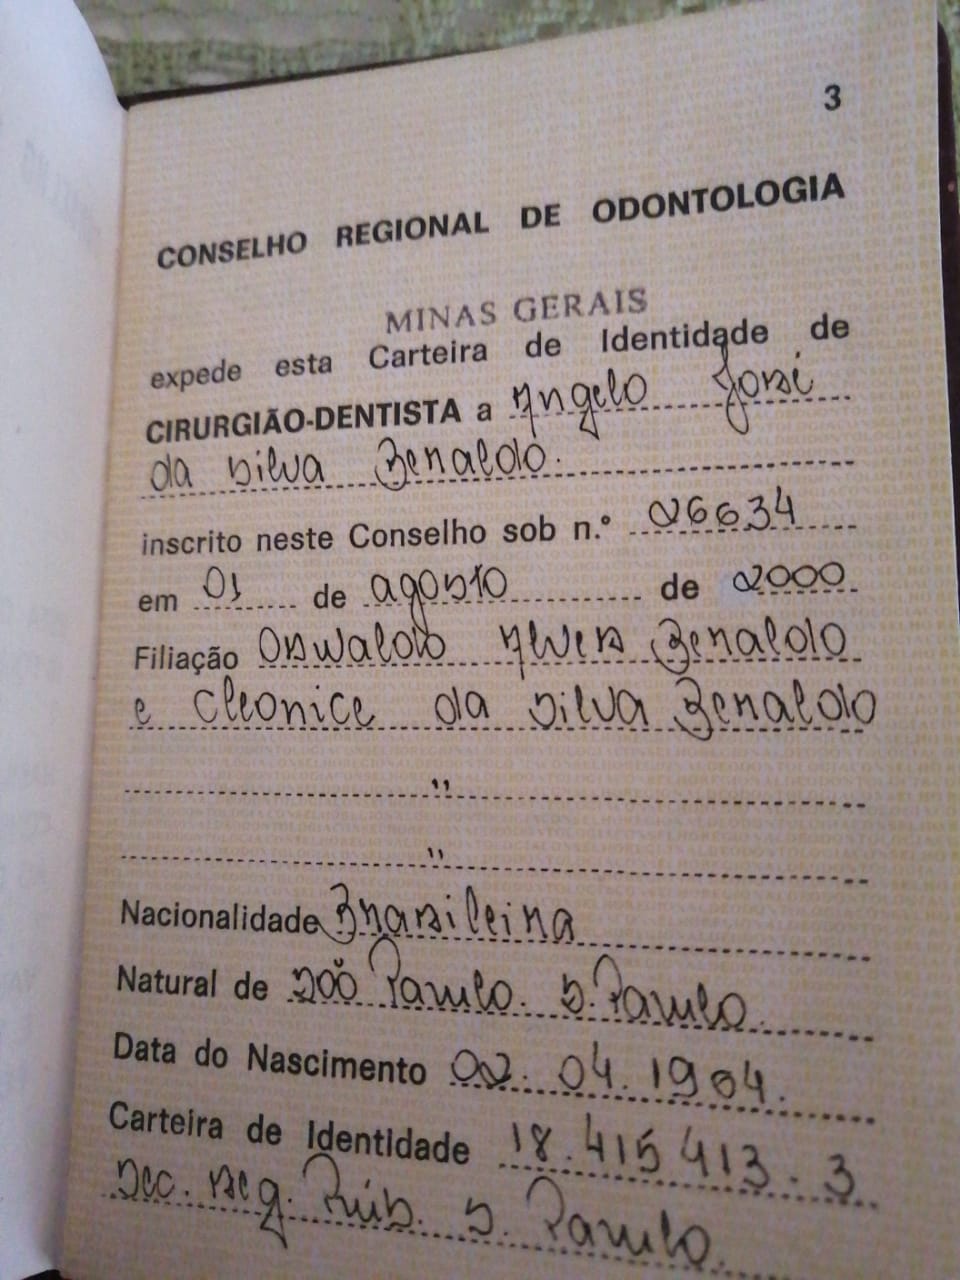 3
CONSELHO REGIONAL DE ODONTOLOGIA
MINAS GERAIS
expede esta Carteira de Identidade de
CIRURGIÃO-DENTISTA a Angelo José
da Silva Benaldo.
inscrito neste Conselho sob n.º 26634
em 01 de agosto de 2000
Filiação Oswaldo Alves Benaldo
e Cleonice da Silva Benaldo
"
"
Nacionalidade Brasileira
Natural de São Paulo. S. Paulo.
Data do Nascimento 02.04.1964.
Carteira de Identidade 18.415413.3
Sec. Seg. Púb. S. Paulo.